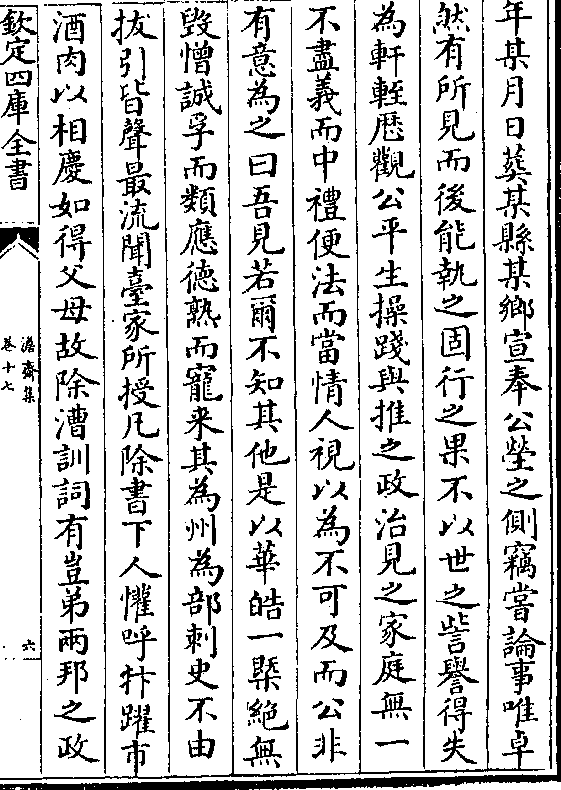 年某月日葬某縣某鄉宣奉公塋之側竊嘗論事唯卓
然有所見而後能執之固行之果不以世之訾譽得失
為軒輊歴觀公平生操踐與推之政治見之家庭無一
不盡義而中禮便法而當情人視以為不可及而公非
有意為之曰吾見若爾不知其他是以華皓一槩絶無
毀憎誠孚而類應徳熟而寵来其為州為部刺史不由
拔引皆聲最流聞臺家所授凡除書下人懽呼抃躍市
酒肉以相慶如得父母故除漕訓詞有豈弟兩邦之政
欽定四庫全書
澹齋集
卷十七
六